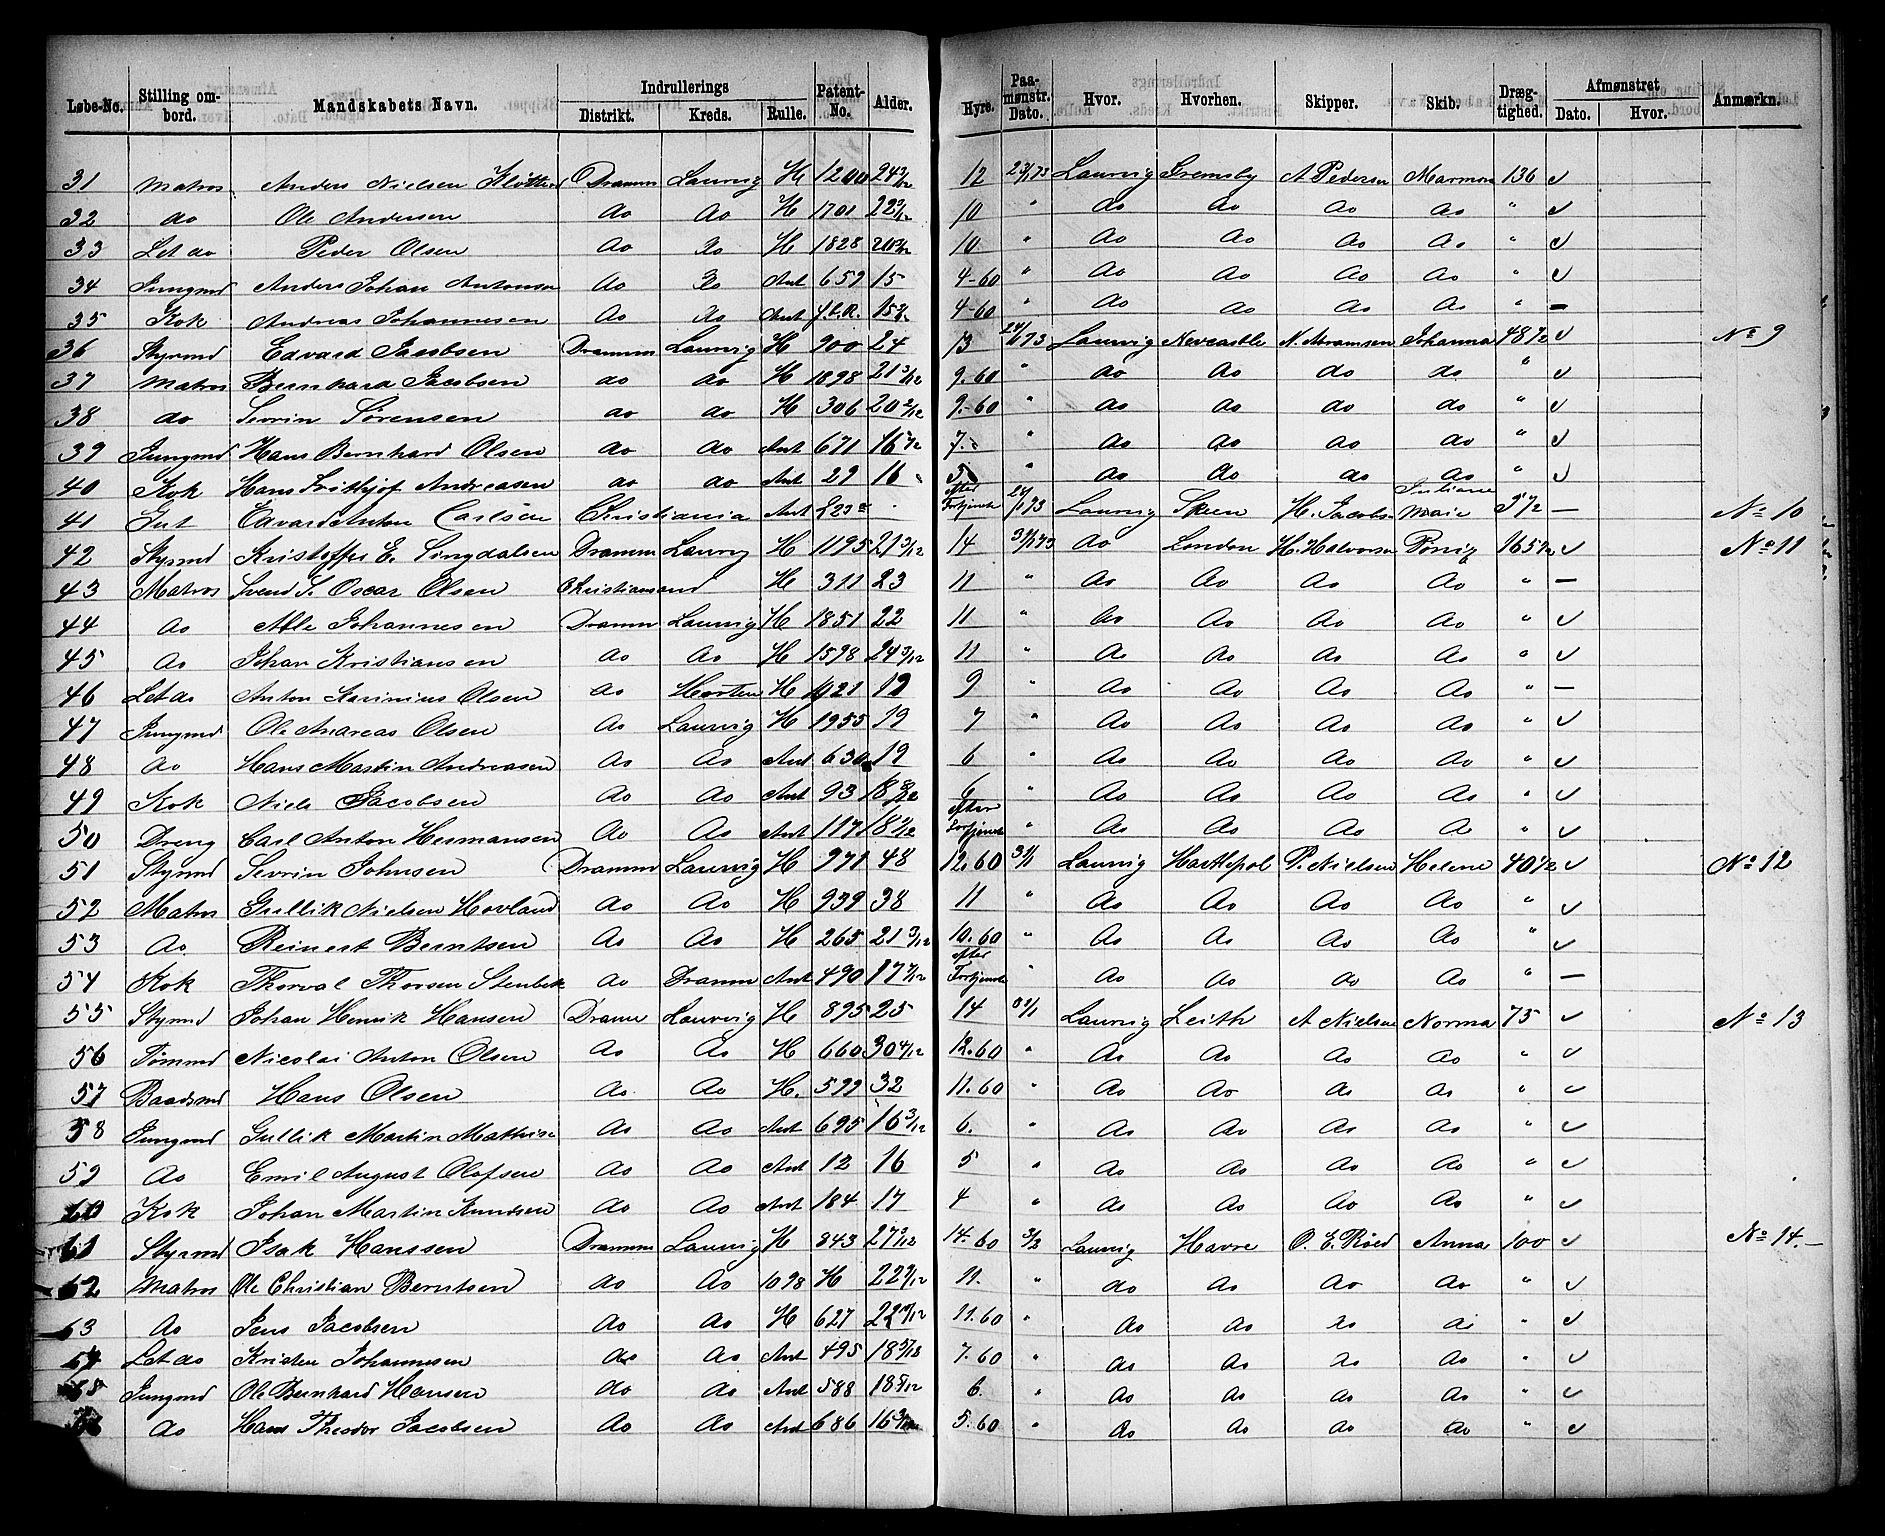 Løbe-No. Stilling ombord. Mandskabets Navn. Indrullerings Distrikt. Kreds. Rulle. Patent-No. Alder. Hyre. Paamønstr. Dato. Hvor. Hvorhen. Skipper. Skib. Drægtighed. Afmønstret Dato. Hvor. Anmærkn.
31 Matros Anders Nielsen Dramm Laurvig H 1200 12 23/1 73 Laurvig Gremsby A Pedersen Marmora 136 ✓
32 do Ole Andersen do do H 1701 10 " do do do do " ✓
33 Let do Peder Olsen do do H 1828 10 " do do do do " ✓
34 Jungmd Anders Johan Antonsen do do Ant 659 15 4-60 " do do do do " ✓
35 Kok Andreas Johannesen do do Ant 4-60 " do do do do " —
36 Styrmd Edvard Jacobsen Dramm Laurvig H 900 24 13 24/1 73 Laurvig Newcastle N. Abramsen Johanna 48 1/2 ✓ No 9
37 Matros Bernhard Jacobsen do do H 1098 21 3/12 9.60 " do do do do " ✓
38 do Sevrin Sørensen do do H 306 20 2/12 9.-60 " do do do do " ✓
39 Jungmd Hans Bernhard Olsen do do Ant 671 16 7/12 7.- " do do do do " ✓
40 Kok Hans Frithjof Andreasen do do Ant 29 16 5 " do do do do " ✓
41 Jut Edvard Anton Carlsen Christiania Ant efter Fortjeneste 24/1 73 Laurvig Skeen H. Jacobs Juliane Marie — No 10
42 Styrmd Kristoffer E. Lingdalsen Dramm Laurvig H 1195 21 3/12 14 31/1 73 do London H. Halvorsen 165 1/2 ✓ No 11
43 Matros Svend S. Oscar Olsen Christiansand H 311 23 11 " do do do do " —
44 do Atle Johannesen Dramm Laurvig H 1851 22 11 " do do do do " ✓
45 do Johan Kristiansen do do H 1598 24 3/12 11 " do do do do " ✓
46 Let do Anton Olsen do Horten H 1021 19 9 " do do do do " —
47 Jungmd Ole Andreas Olsen do Laurvig H 1955 19 7 " do do do do " ✓
48 do Hans Martin Andreasen do do Ant 630 19 6 " do do do do " ✓
49 Kok Niels Jacobsen do do Ant 93 6 " do do do do " ✓
50 Dreng Carl Anton Hermansen do do Ant 117 efter Fortjeneste " do do do do " ✓
51 Styrmd Sevrin Johnsen Dramm Laurvig H 971 48 12.60 31/1 Laurvig Hartlepol P. Nielsen Helene 40 1/2 ✓ No 12
52 Matros Gullik Nielsen Hovland do do H 939 38 11 do do do do " ✓
53 do Reinert Berntsen do do H 265 21 3/12 10.60 " do do do do " ✓
54 Kok Thorval Thorsen do Dramm Ant 490 17 7/12 efter Fortjeneste do do do do " —
55 Styrmd Johan Henrik Hansen Dramm Laurvig H 895 25 14 31/1 Laurvig Leith A Nielsen Norma 75 ✓ No 13
56 Tømmd Nicolai Anton Olsen do do H 660 30 4/12 12.60 " do do do do " ✓
57 Baadsmd Hans Olsen do do H. 599 32 11.60 " do do do do " ✓
58 Jungmd Gullik Martin Mathisen do do Ant 695 16 3/12 6. " do do do do " ✓
59 do Emil August Olofsen do do Ant 12 16 5 " do do do do " ✓
60 Kok Johan Martin Knudsen do do Ant 184 17 4 " do do do do " ✓
61 Styrmd Isak Hanssen Dramm Laurvig H 843 14.60 3/2 Laurvig Havre O. E. Röed Anna 100 ✓ No 14.—
62 Matros Ole Christian Berntsen do do 1098 H 11. " do do do do " ✓
63 do Jens Jacobsen do do H 627 11.60 " do do do do " ✓
64 Let do Kristen Johannesen do do Ant 495 7.60 " do do do do " ✓
65 Jungmd Ole Bernhard Hansen do do Ant 588 6. " do do do do " ✓
do Hans Theodor Jacobsen do do Ant 686 5.60 " do do do do " ✓